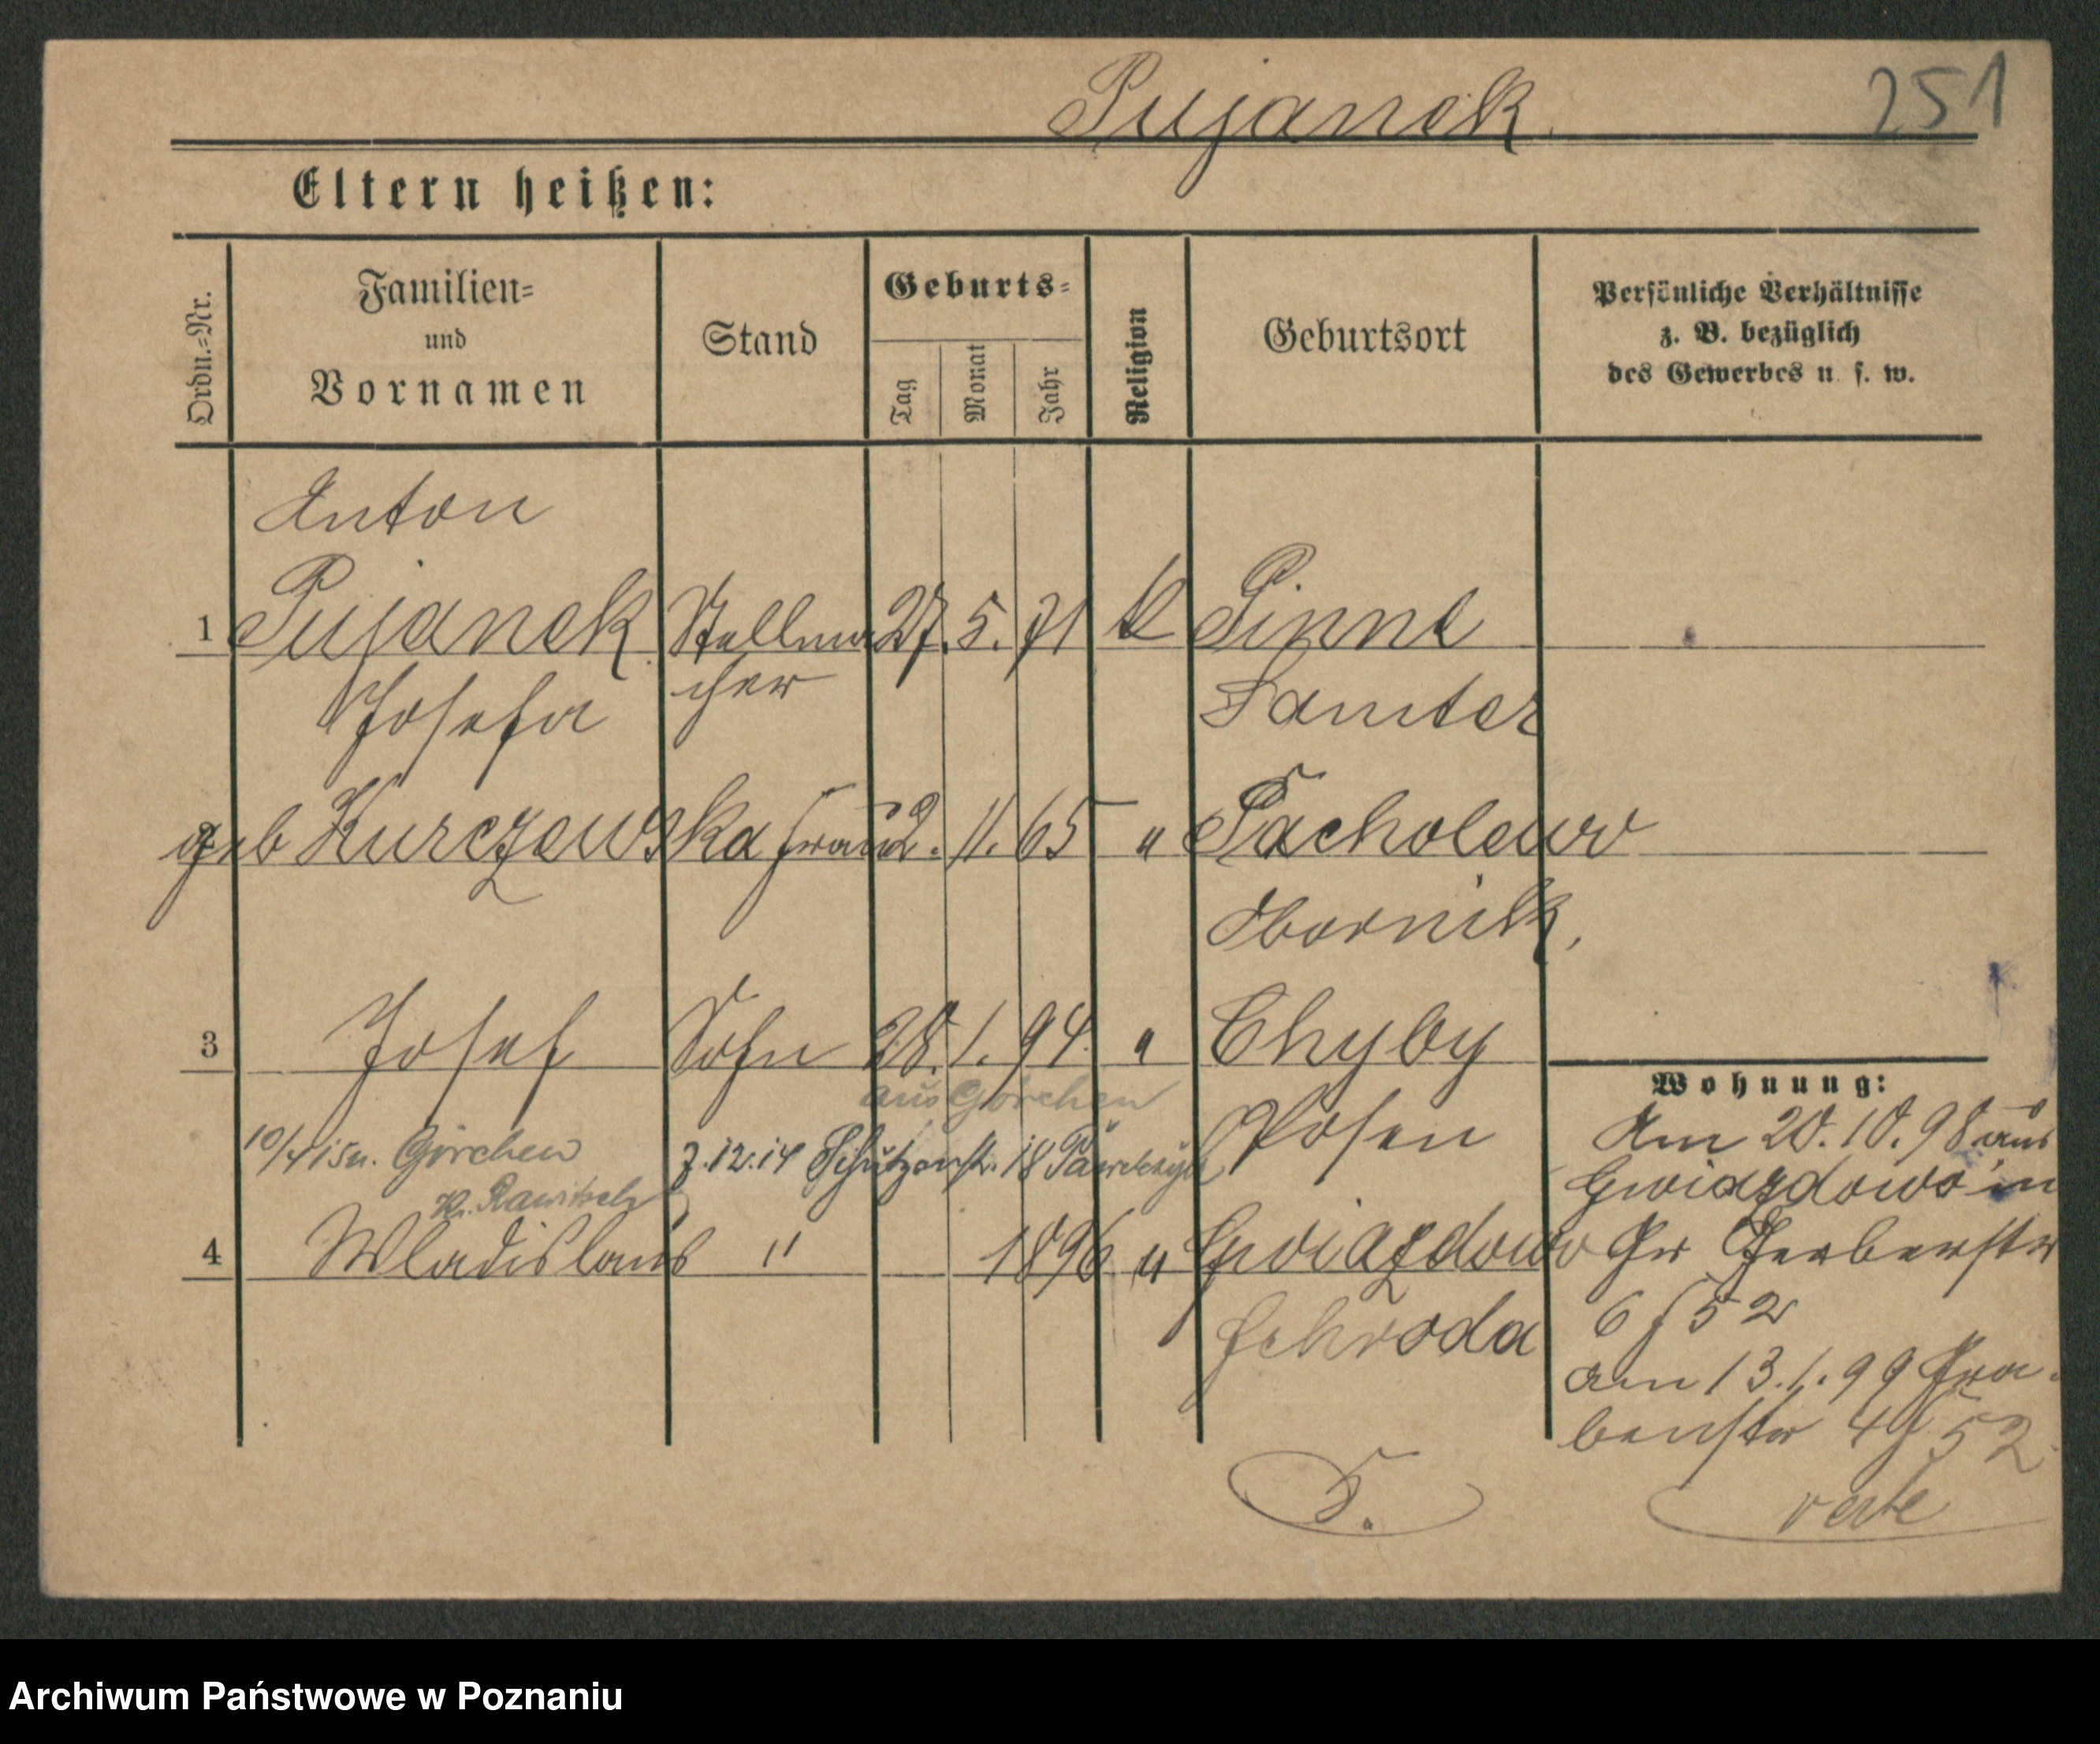 Pujanek
251
Eltern heißen:
Ordn.=Nr.
Familien=
und
Vornamen
Stand
Geburts=
Tag
Monat
Jahr
Religion
Geburtsort
Persönliche Verhältnisse
z. B. bezüglich
des Gewerbes u. s. w.
Anton
1 Pujanek Stellma 27. 5. 71 k Pinne
cher Samter
Josefa
geb Kurczewska Frau 2. 11. 65 " Pacholewo
Obornik,
3 Josef Sohn 28. 1. 94. " Chyby
aus Görchen
Posen
10/4 15 n. Görchen
Kr. Rawitsch
z. 12.14 Schützenstr. 18
4 Wladislaus " 1896 " Gwiazdowo
Schroda
Wohnung:
Am 20.10.98 aus
Gwiazdowo in
Gr Gerberstr
6 / 52
am 13.1.99 Gra-
benstr 4 / 52
verte
Archiwum Państwowe w Poznaniu